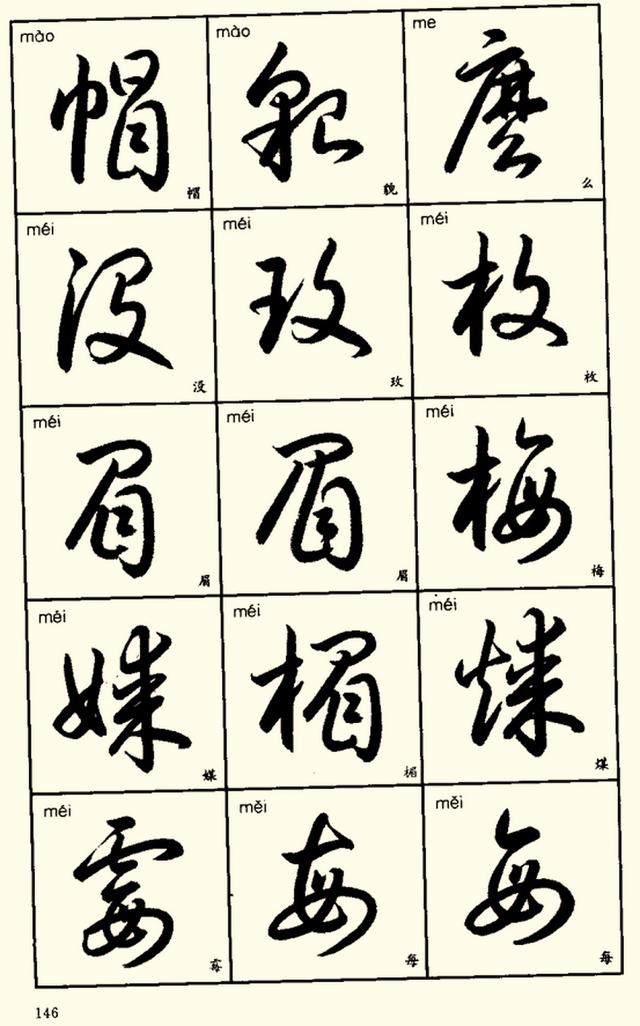 mào mào me
帽 貌 麼
帽 貌 么
méi méi méi
没 玫 枚
没 玫 枚
méi méi méi
眉 眉 梅
眉 眉 梅
méi méi méi
媒 楣 煤
媒 楣 煤
méi měi měi
霉 每 每
霉 每 每
146